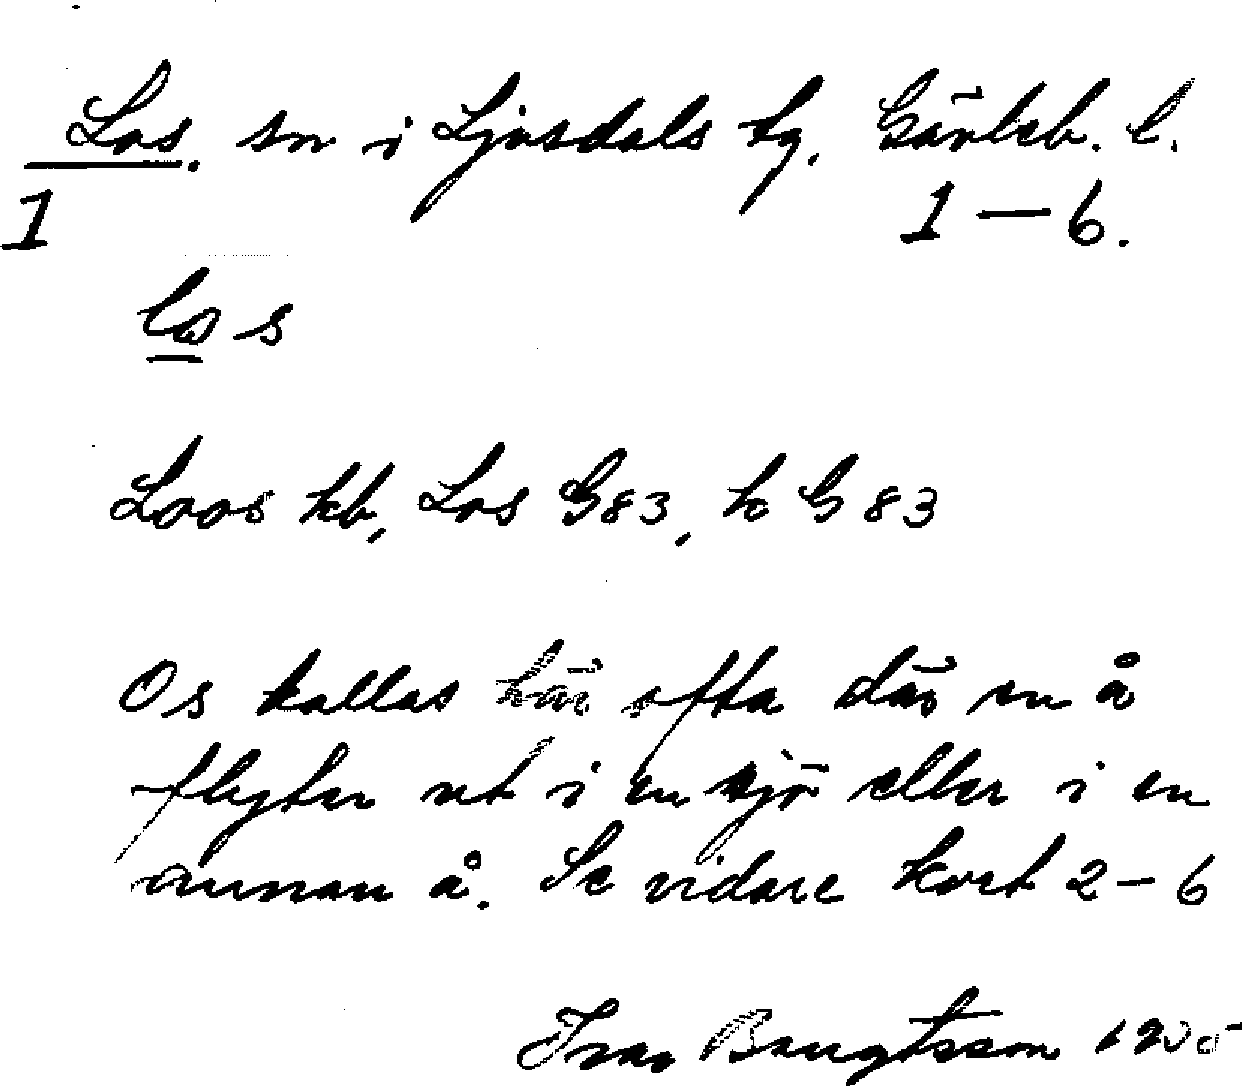 Los. sn i Ljusdals tg. Gävleb. l.
1 1-6.
los
Loos kb, Los G83, h G 83
Os kallas här ofta där en å
flyter ut i en sjö eller i en
annan å. Se vidare kort 2-6
Ivar Bengtsson